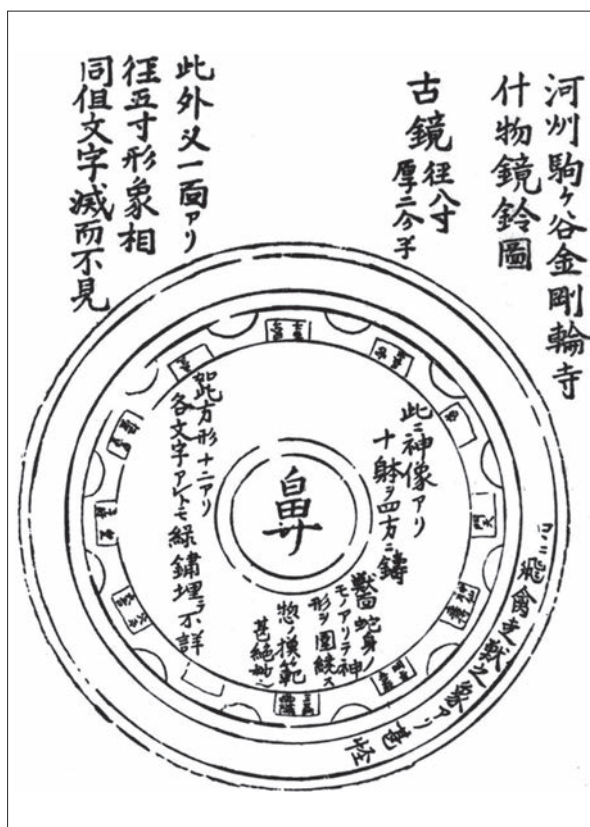 河州駒ヶ谷金剛輪寺
什物鏡鈴圖
古鏡 径八寸
厚サ二分半
此外又一面アリ
径五寸形象相
同但文字滅而不見
此ニ神像アリ
十躰ヲ四方ニ鋳
獣面蛇身ノ
モノアリテ神
形ヲ圍繞ス
惣ノ模範
甚絶妙
鼻
如此方形十二アリ
各文字アレトモ緑鏽埋テ不詳
飛禽走獣之象アリ甚怪